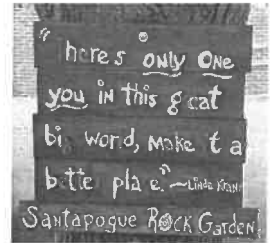 "There's only one
you in this great
big world, make it a
better place." ~Linda Kranz
Santapogue Rock Garden